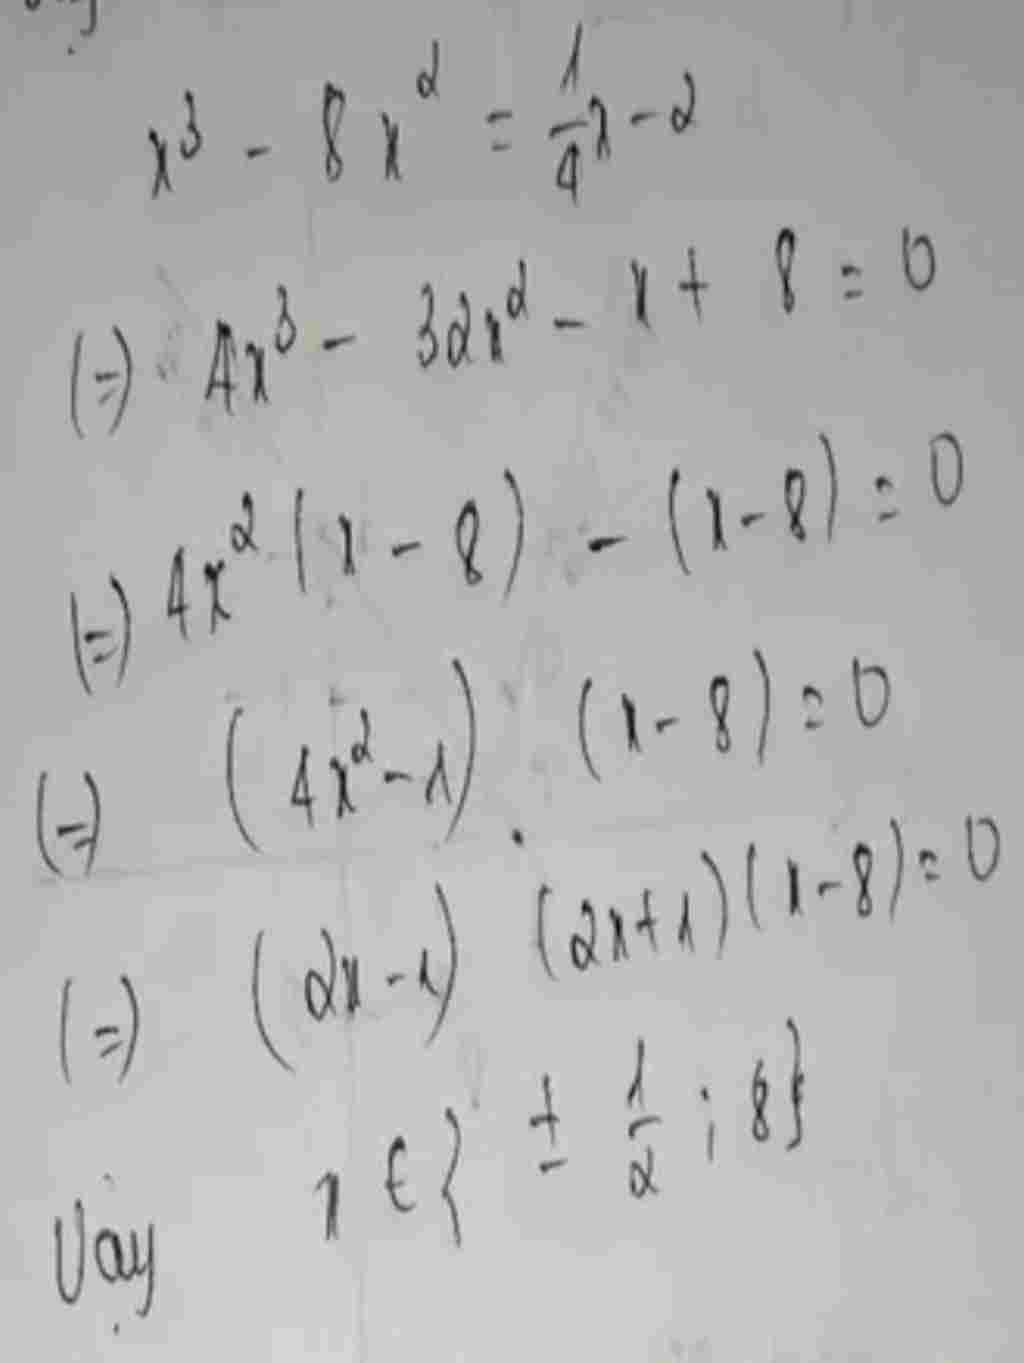 x³ - 8x² = 1/4 x - 2
(=) 4x³ - 32x² - x + 8 = 0
(=) 4x² (x - 8) - (x - 8) = 0
(=) (4x² - 1) . (x - 8) = 0
(=) (2x - 1) (2x + 1) (x - 8) = 0
Vậy x ∈ { ± 1/2 ; 8 }